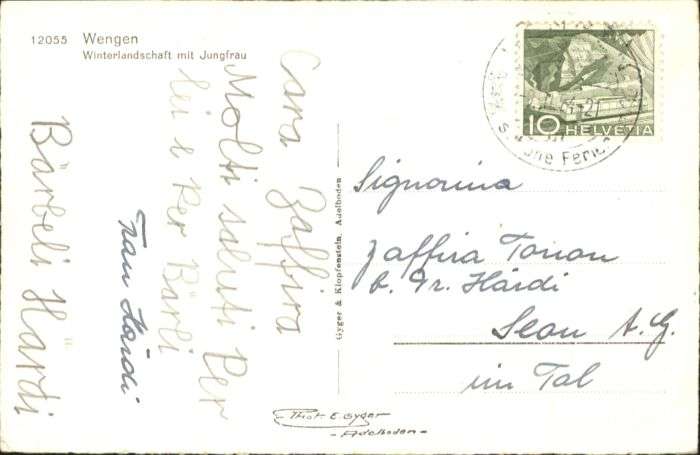 12055 Wengen
Winterlandschaft mit Jungfrau
Cara Zaffira
Molti saluti Per
lei e Per Bärli
Frau Härdi
Bärbeli Härdi
Gyger & Klopfenstein, Adelboden
10 HELVETIA
Signorina
Zaffira Tonon
b. Fr. Härdi
Seon A.G.
im Tal
Phot E. Gyger
- Adelboden -